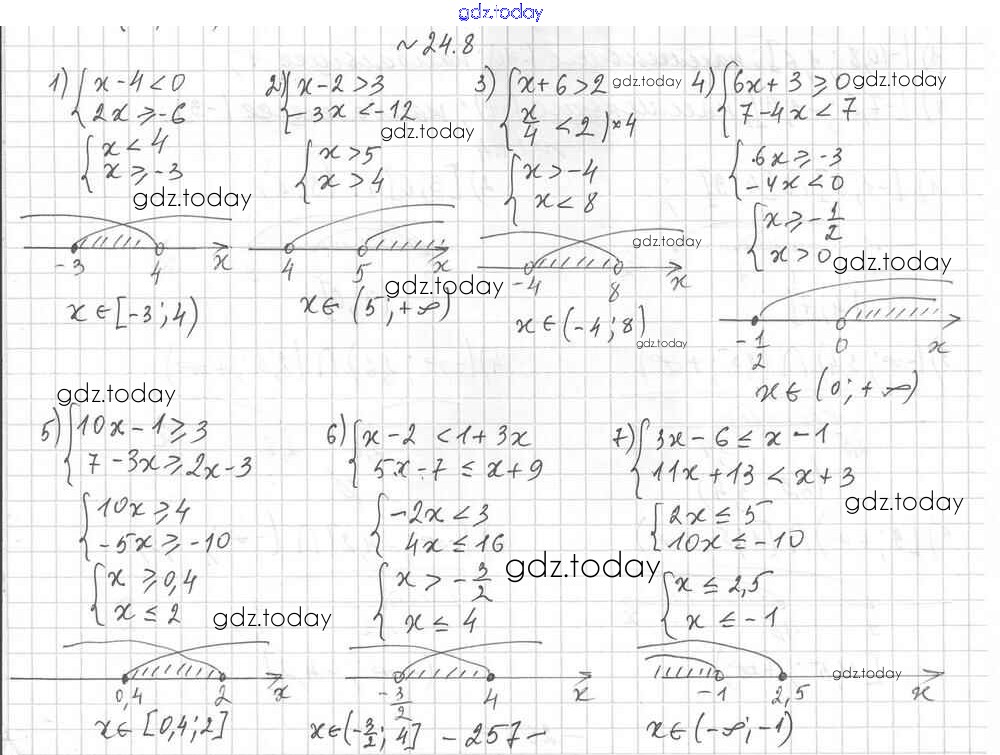 gdz.today
~ 24.8
1) { x-4<0
2x ≥ -6
{ x<4
x ≥ -3
gdz.today
-3 4 x
x ∈ [-3; 4)
2) { x-2>3
-3x < -12
gdz.today
{ x>5
x>4
4 5 x
gdz.today
x ∈ (5; +∞)
3) { x+6>2 gdz.today
x/4 < 2 ) *4
{ x>-4
x<8
gdz.today
-4 8 x
x ∈ (-4; 8)
gdz.today
4) { 6x+3 ≥ 0 gdz.today
7-4x < 7
{ 6x ≥ -3
-4x<0
{ x ≥ -1/2
x>0
gdz.today
-1/2 0 x
x ∈ (0; +∞)
gdz.today
5) { 10x-1 ≥ 3
7-3x ≥ 2x-3
{ 10x ≥ 4
-5x ≥ -10
{ x ≥ 0,4
x ≤ 2
gdz.today
0,4 2 x
x ∈ [0,4; 2]
6) { x-2 < 1+3x
5x-7 ≤ x+9
{ -2x<3
4x ≤ 16
{ x > -3/2
x ≤ 4
gdz.today
-3/2 4 x
x ∈ (-3/2; 4]
- 257 -
7) { 3x-6 ≤ x-1
11x+13 < x+3
gdz.today
{ 2x ≤ 5
10x ≤ -10
{ x ≤ 2,5
x ≤ -1
gdz.today
-1 2,5 x
x ∈ (-∞; -1)